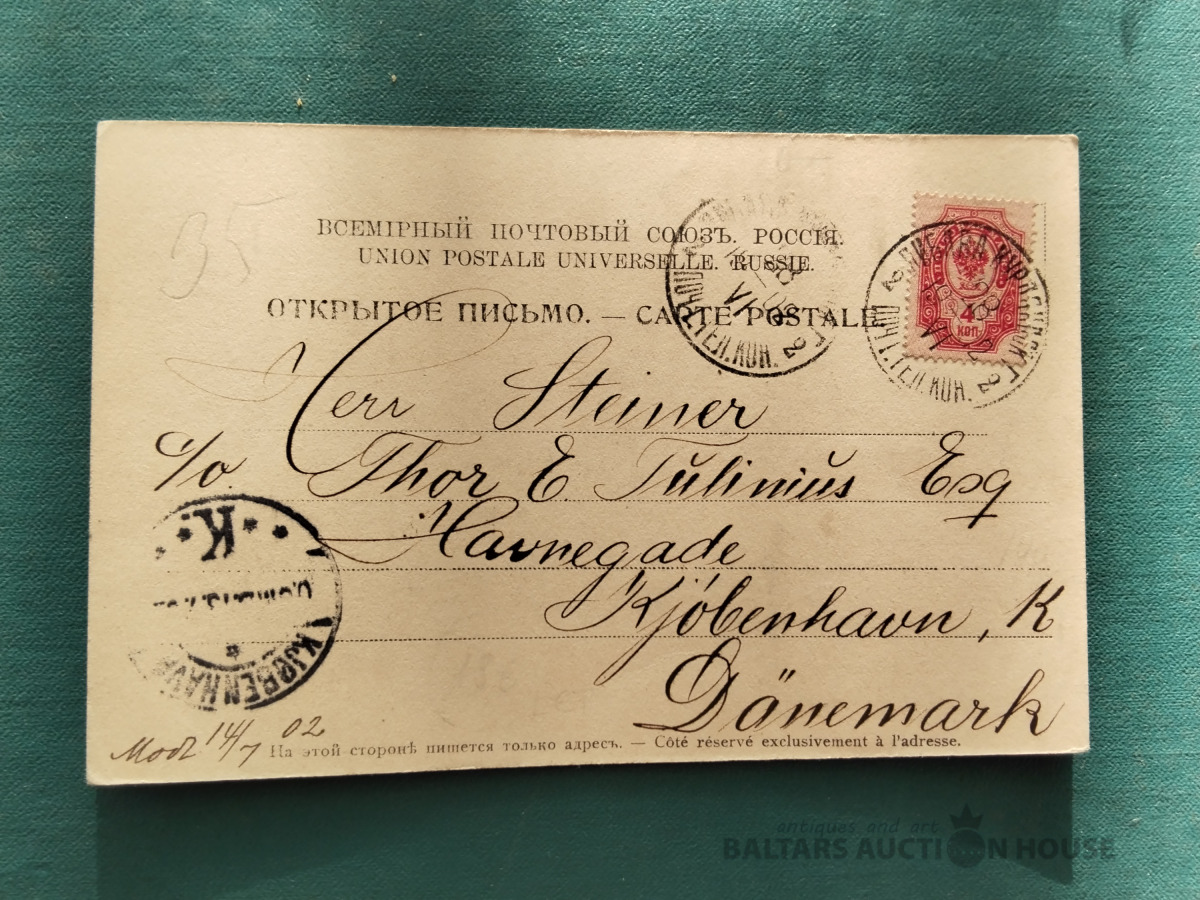 35
ВСЕМІРНЫЙ ПОЧТОВЫЙ СОЮЗЪ. РОССІЯ.
UNION POSTALE UNIVERSELLE. RUSSIE.
ОТКРЫТОЕ ПИСЬМО. — CARTE POSTALE
4
КОП.
ПОЧТ.ТЕЛ.КОН.
ПОЧТ.ТЕЛ.КОН.
Herr Steiner
c/o. Thor E. Tulinius Esq
Havnegade
Kjöbenhavn, K
Dänemark
K.
KJØBENHAVN
Modt 14/7 02
На этой сторонѣ пишется только адресъ. — Côté réservé exclusivement à l'adresse.
antiques and art
BALTARS AUCTION HOUSE